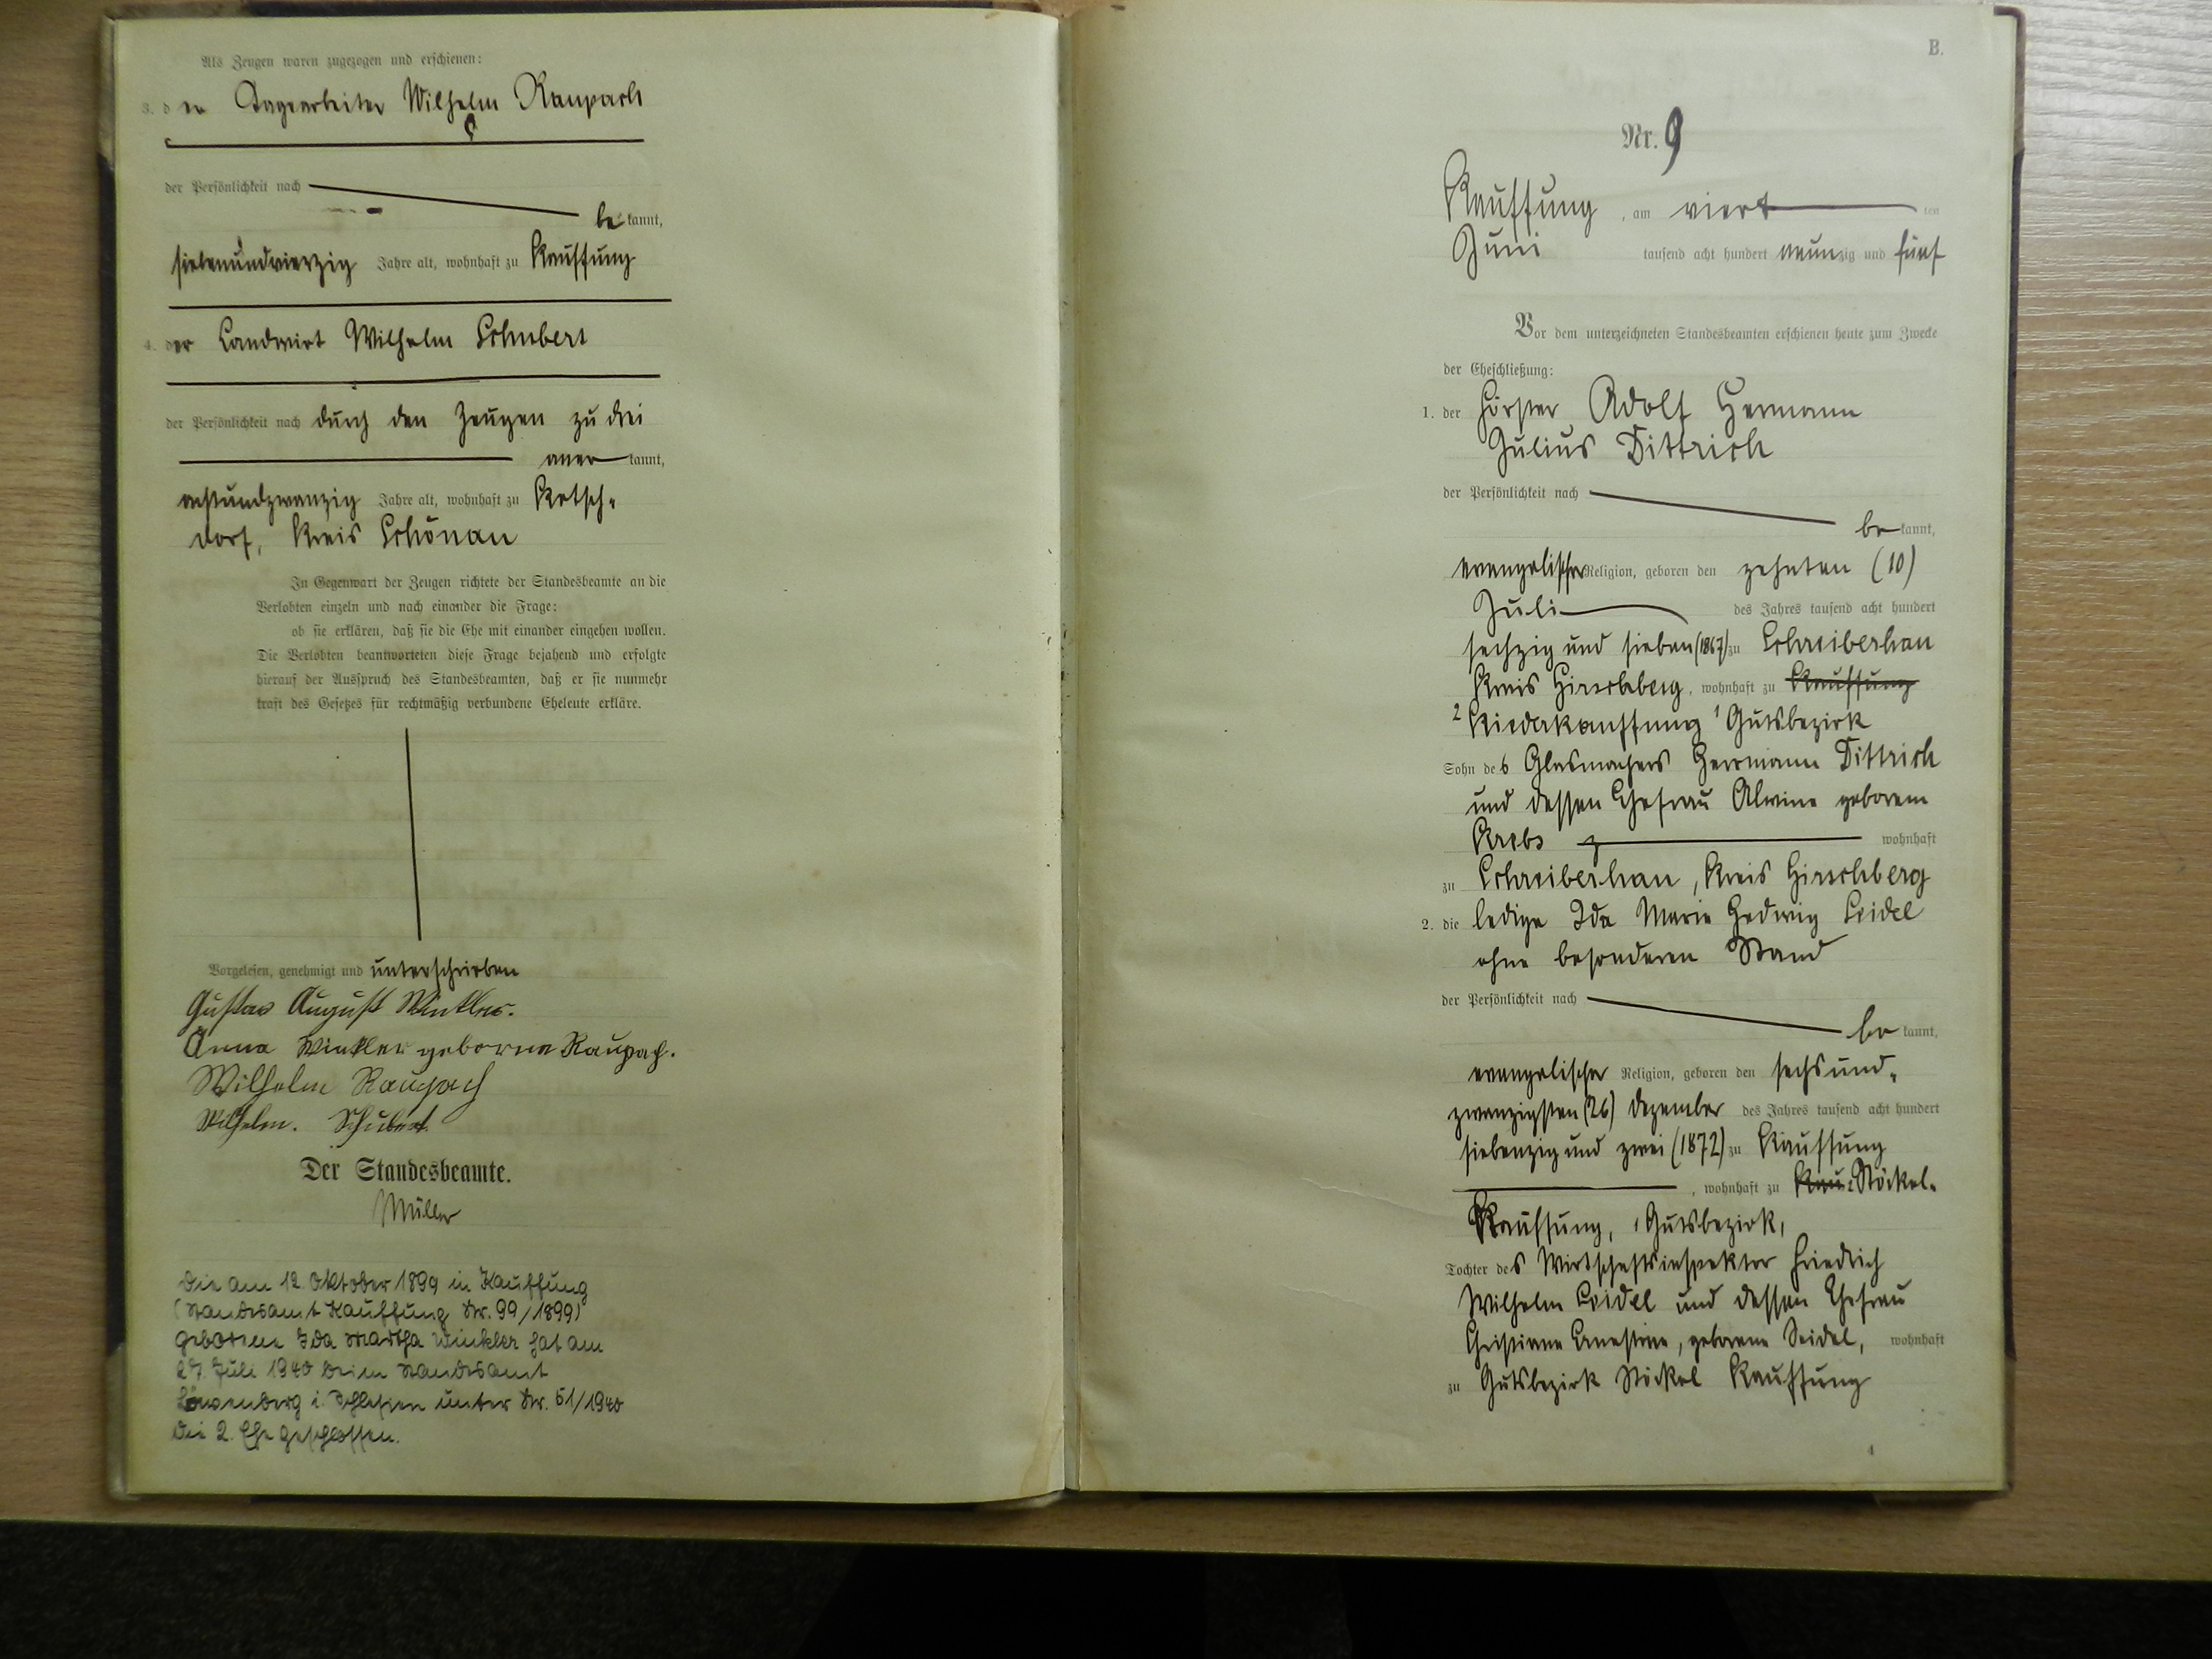 Als Zeugen waren zugezogen und erschienen:
3. der Tagearbeiter Wilhelm Raupach
der Persönlichkeit nach
be kannt,
siebenundvierzig Jahre alt, wohnhaft zu Kauffung
4. der Landwirt Wilhelm Schubert
der Persönlichkeit nach durch den Zeugen zu drei
aner kannt,
achtundzwanzig Jahre alt, wohnhaft zu Ketsch-
dorf, Kreis Schönau
In Gegenwart der Zeugen richtete der Standesbeamte an die
Verlobten einzeln und nach einander die Frage:
ob sie erklären, daß sie die Ehe mit einander eingehen wollen.
Die Verlobten beantworteten diese Frage bejahend und erfolgte
hierauf der Ausspruch des Standesbeamten, daß er sie nunmehr
kraft des Gesetzes für rechtmäßig verbundene Eheleute erkläre.
Vorgelesen, genehmigt und unterschrieben
Gustav August Winkler.
Anna Winkler geborene Raupach.
Wilhelm Raupach
Wilhelm. Schubert.
Der Standesbeamte.
Müller
Die am 12. Oktober 1899 in Kauffung
(Standesamt Kauffung Nr. 99/1899)
geborene Ida Martha Winkler hat am
27. Juli 1940 beim Standesamt
Löwenberg i. Schlesien unter Nr. 51/1940
die 2. Ehe geschlossen.
B.
Nr. 9
Kauffung, am viert ten
Juni tausend acht hundert neunzig und fünf
Vor dem unterzeichneten Standesbeamten erschienen heute zum Zwecke
der Eheschließung:
1. der Förster Adolf Hermann
Julius Dittrich
der Persönlichkeit nach
be kannt,
evangelischer Religion, geboren den zehnten (10)
Juli des Jahres tausend acht hundert
sechzig und sieben (1867) zu Schreiberhau
Kreis Hirschberg, wohnhaft zu Kauffung
2 Niederkauffung 1 Gutsbezirk
Sohn des Glasmachers Herrmann Dittrich
und dessen Ehefrau Alwine geborene
Krebs wohnhaft
zu Schreiberhau, Kreis Hirschberg
2. die ledige Ida Marie Hedwig Seidel
ohne besonderen Stand
der Persönlichkeit nach
be kannt,
evangelischer Religion, geboren den sechsund-
zwanzigsten (26) Dezember des Jahres tausend acht hundert
siebenzig und zwei (1872) zu Kauffung
, wohnhaft zu Kau: Stöckel-
Kauffung, Gutsbezirk,
Tochter des Wirtschaftsinspektor Friedrich
Wilhelm Seidel und dessen Ehefrau
Christiane Ernestine, geborene Seidel, wohnhaft
zu Gutsbezirk Stöckel Kauffung
4